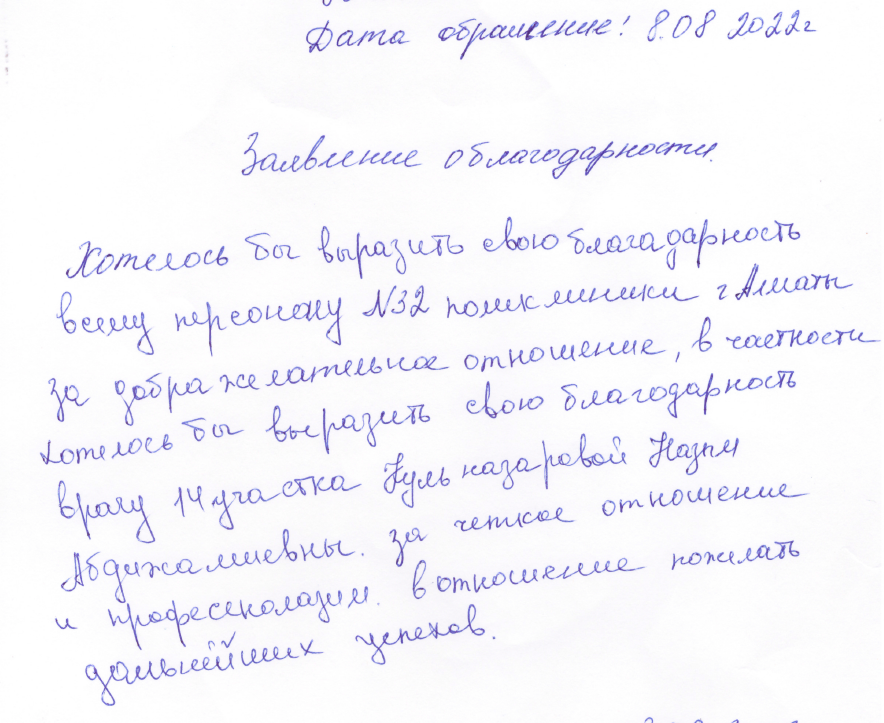 Дата обрашение! 8.08 2022г
Заявление о благодарности.
Хотелось бы выразить свою благадарность
всему персоналу N32 поликлиники г Алматы
за дображелательное отношение, в частности
хотелось бы выразить свою благодарность
врачу 14 участка Кульназаровой Назым
Абдижамиевны. за четкое отношение
и професеколазим. в отношение пожелать
дальнейших успехов.